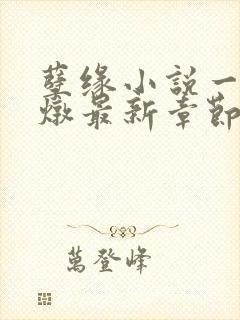 孽缘小説一
燉最新章節
萬登峰